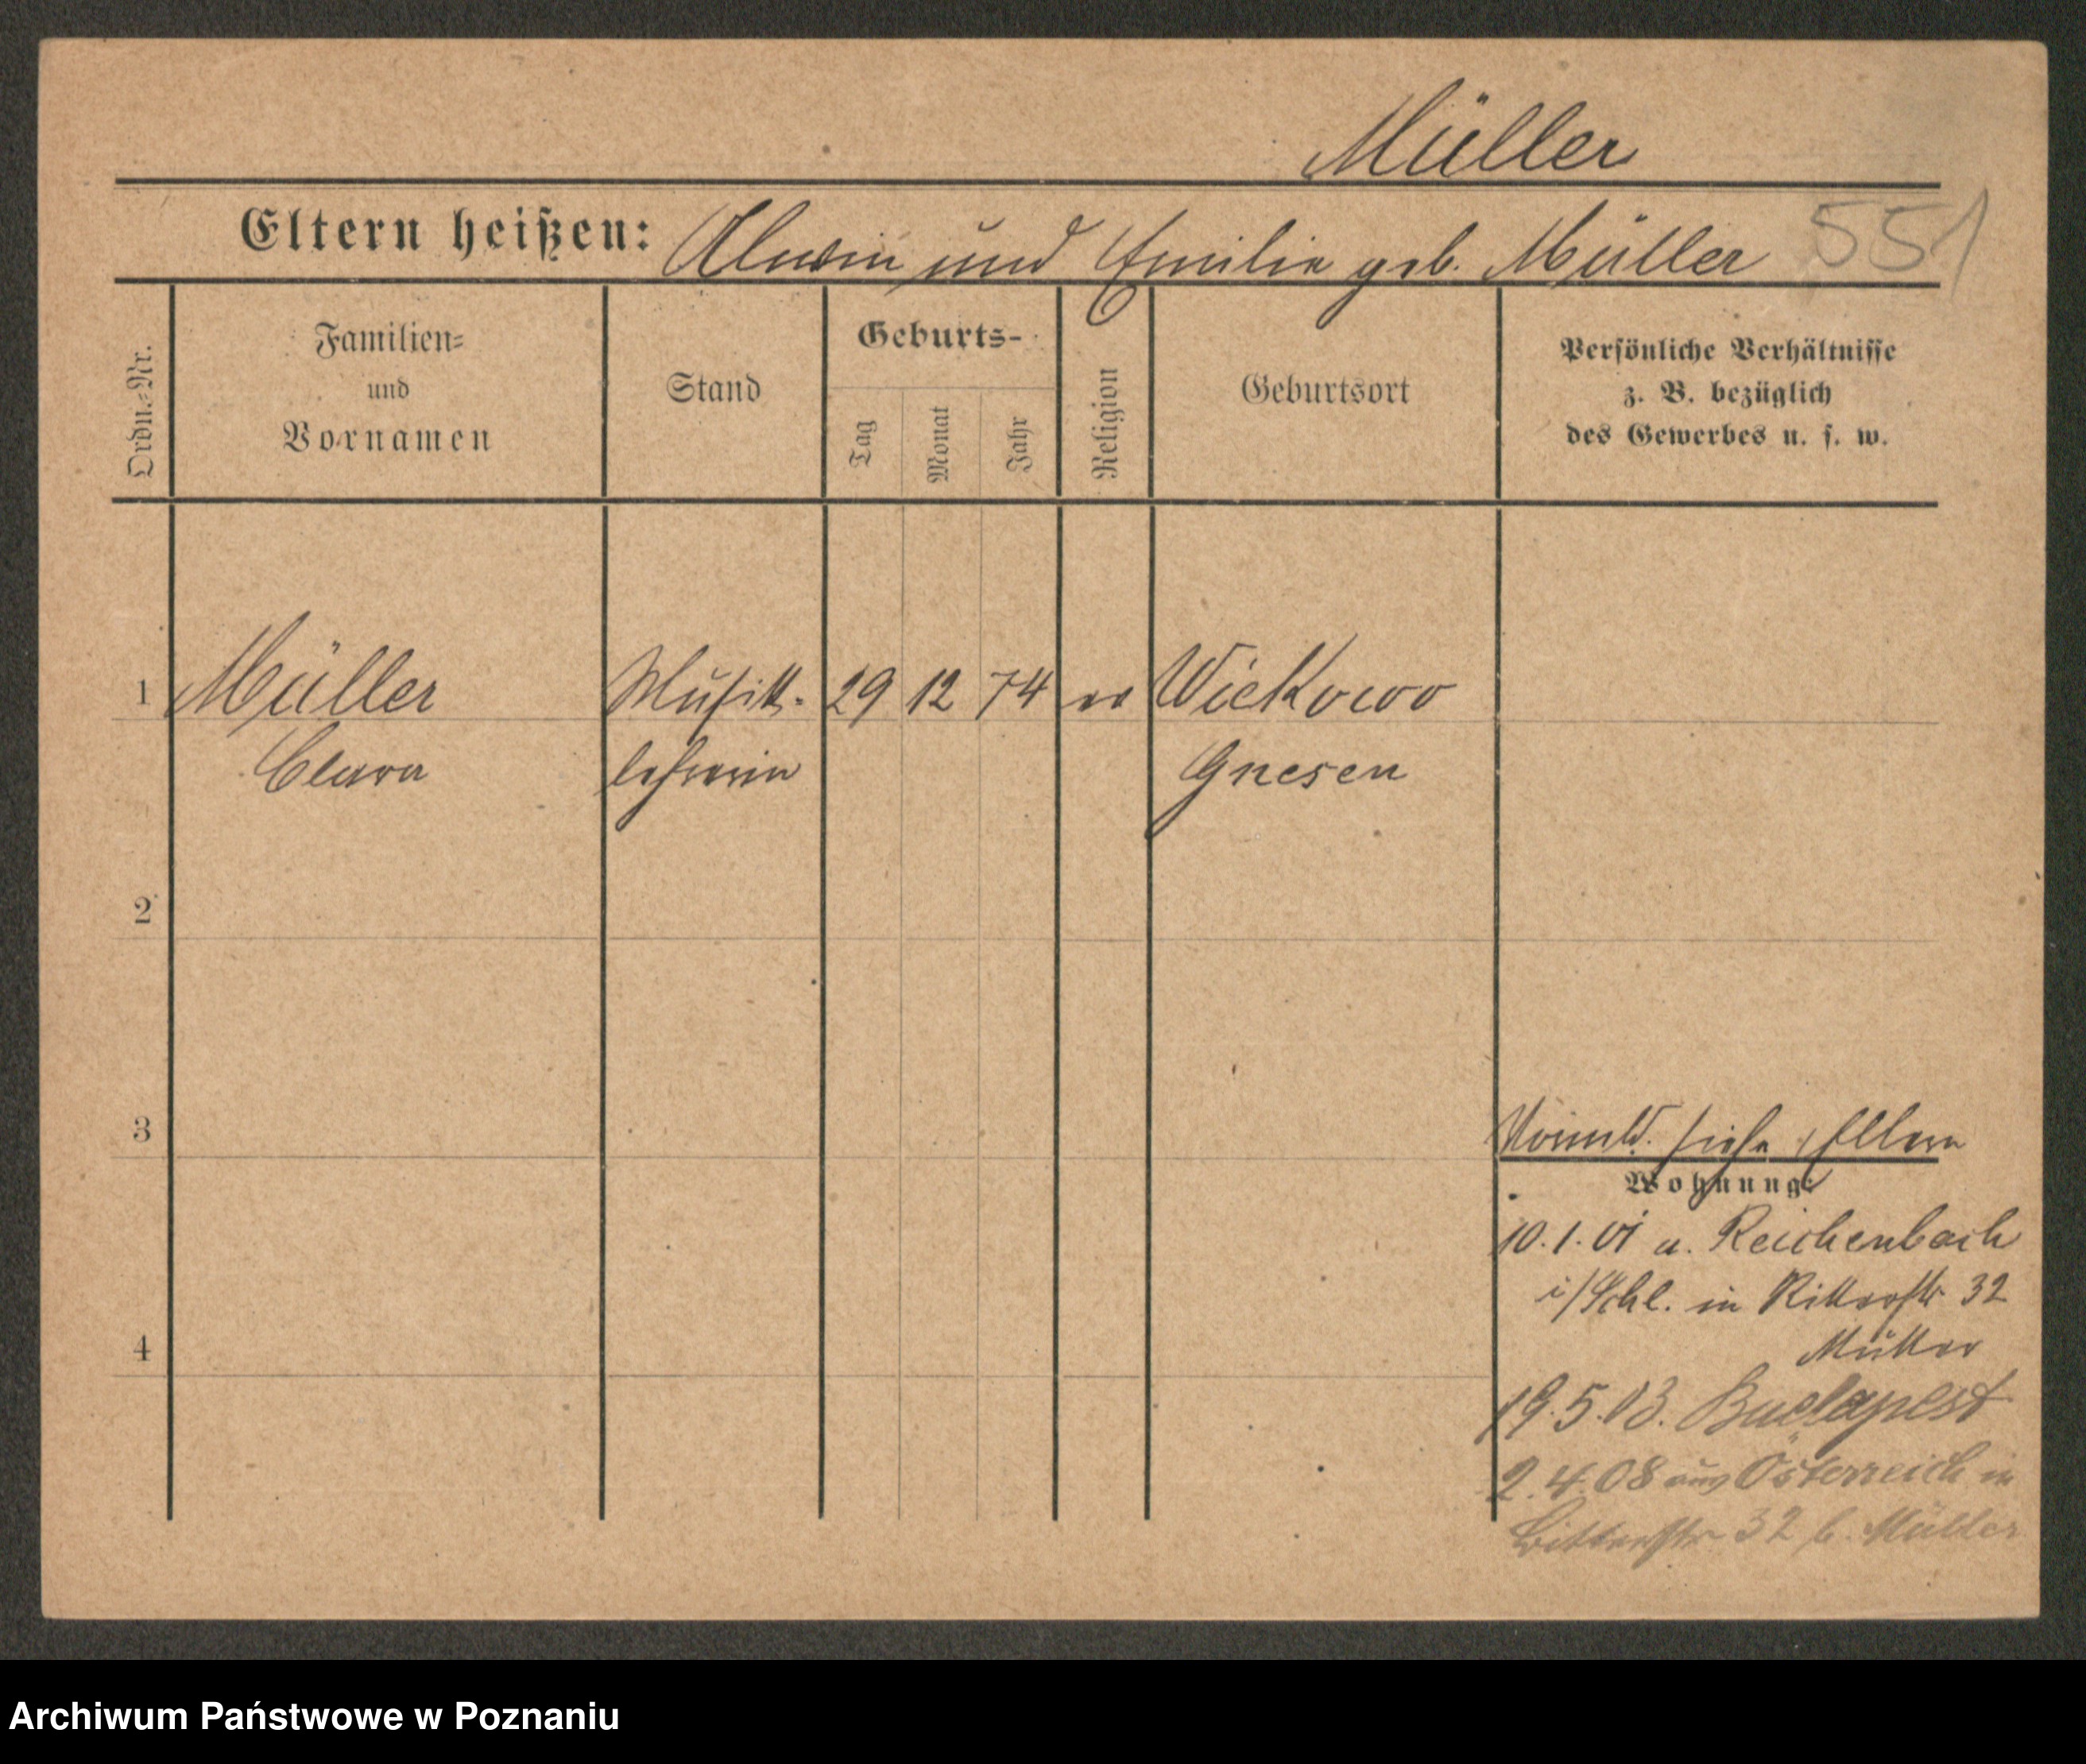 Müller
Eltern heißen: Alwin und Emilie geb. Müller 551
Ordn.=Nr.
Familien=
und
Vornamen
Stand
Geburts-
Tag
Monat
Jahr
Religion
Geburtsort
Persönliche Verhältnisse
z. B. bezüglich
des Gewerbes u. s. w.
1 Müller Musik- 29 12 74 ev Wiekowo
Clara lehrerin Gnesen
2
3
siehe Eltern
Wohnung:
10.1.01 a. Reichenbach
i/Schl. in Ritterstr 32
4
19.5.03. Budapest
2.4.08 aus Österreich in
Ritterstr 32 b. Müller
Archiwum Państwowe w Poznaniu